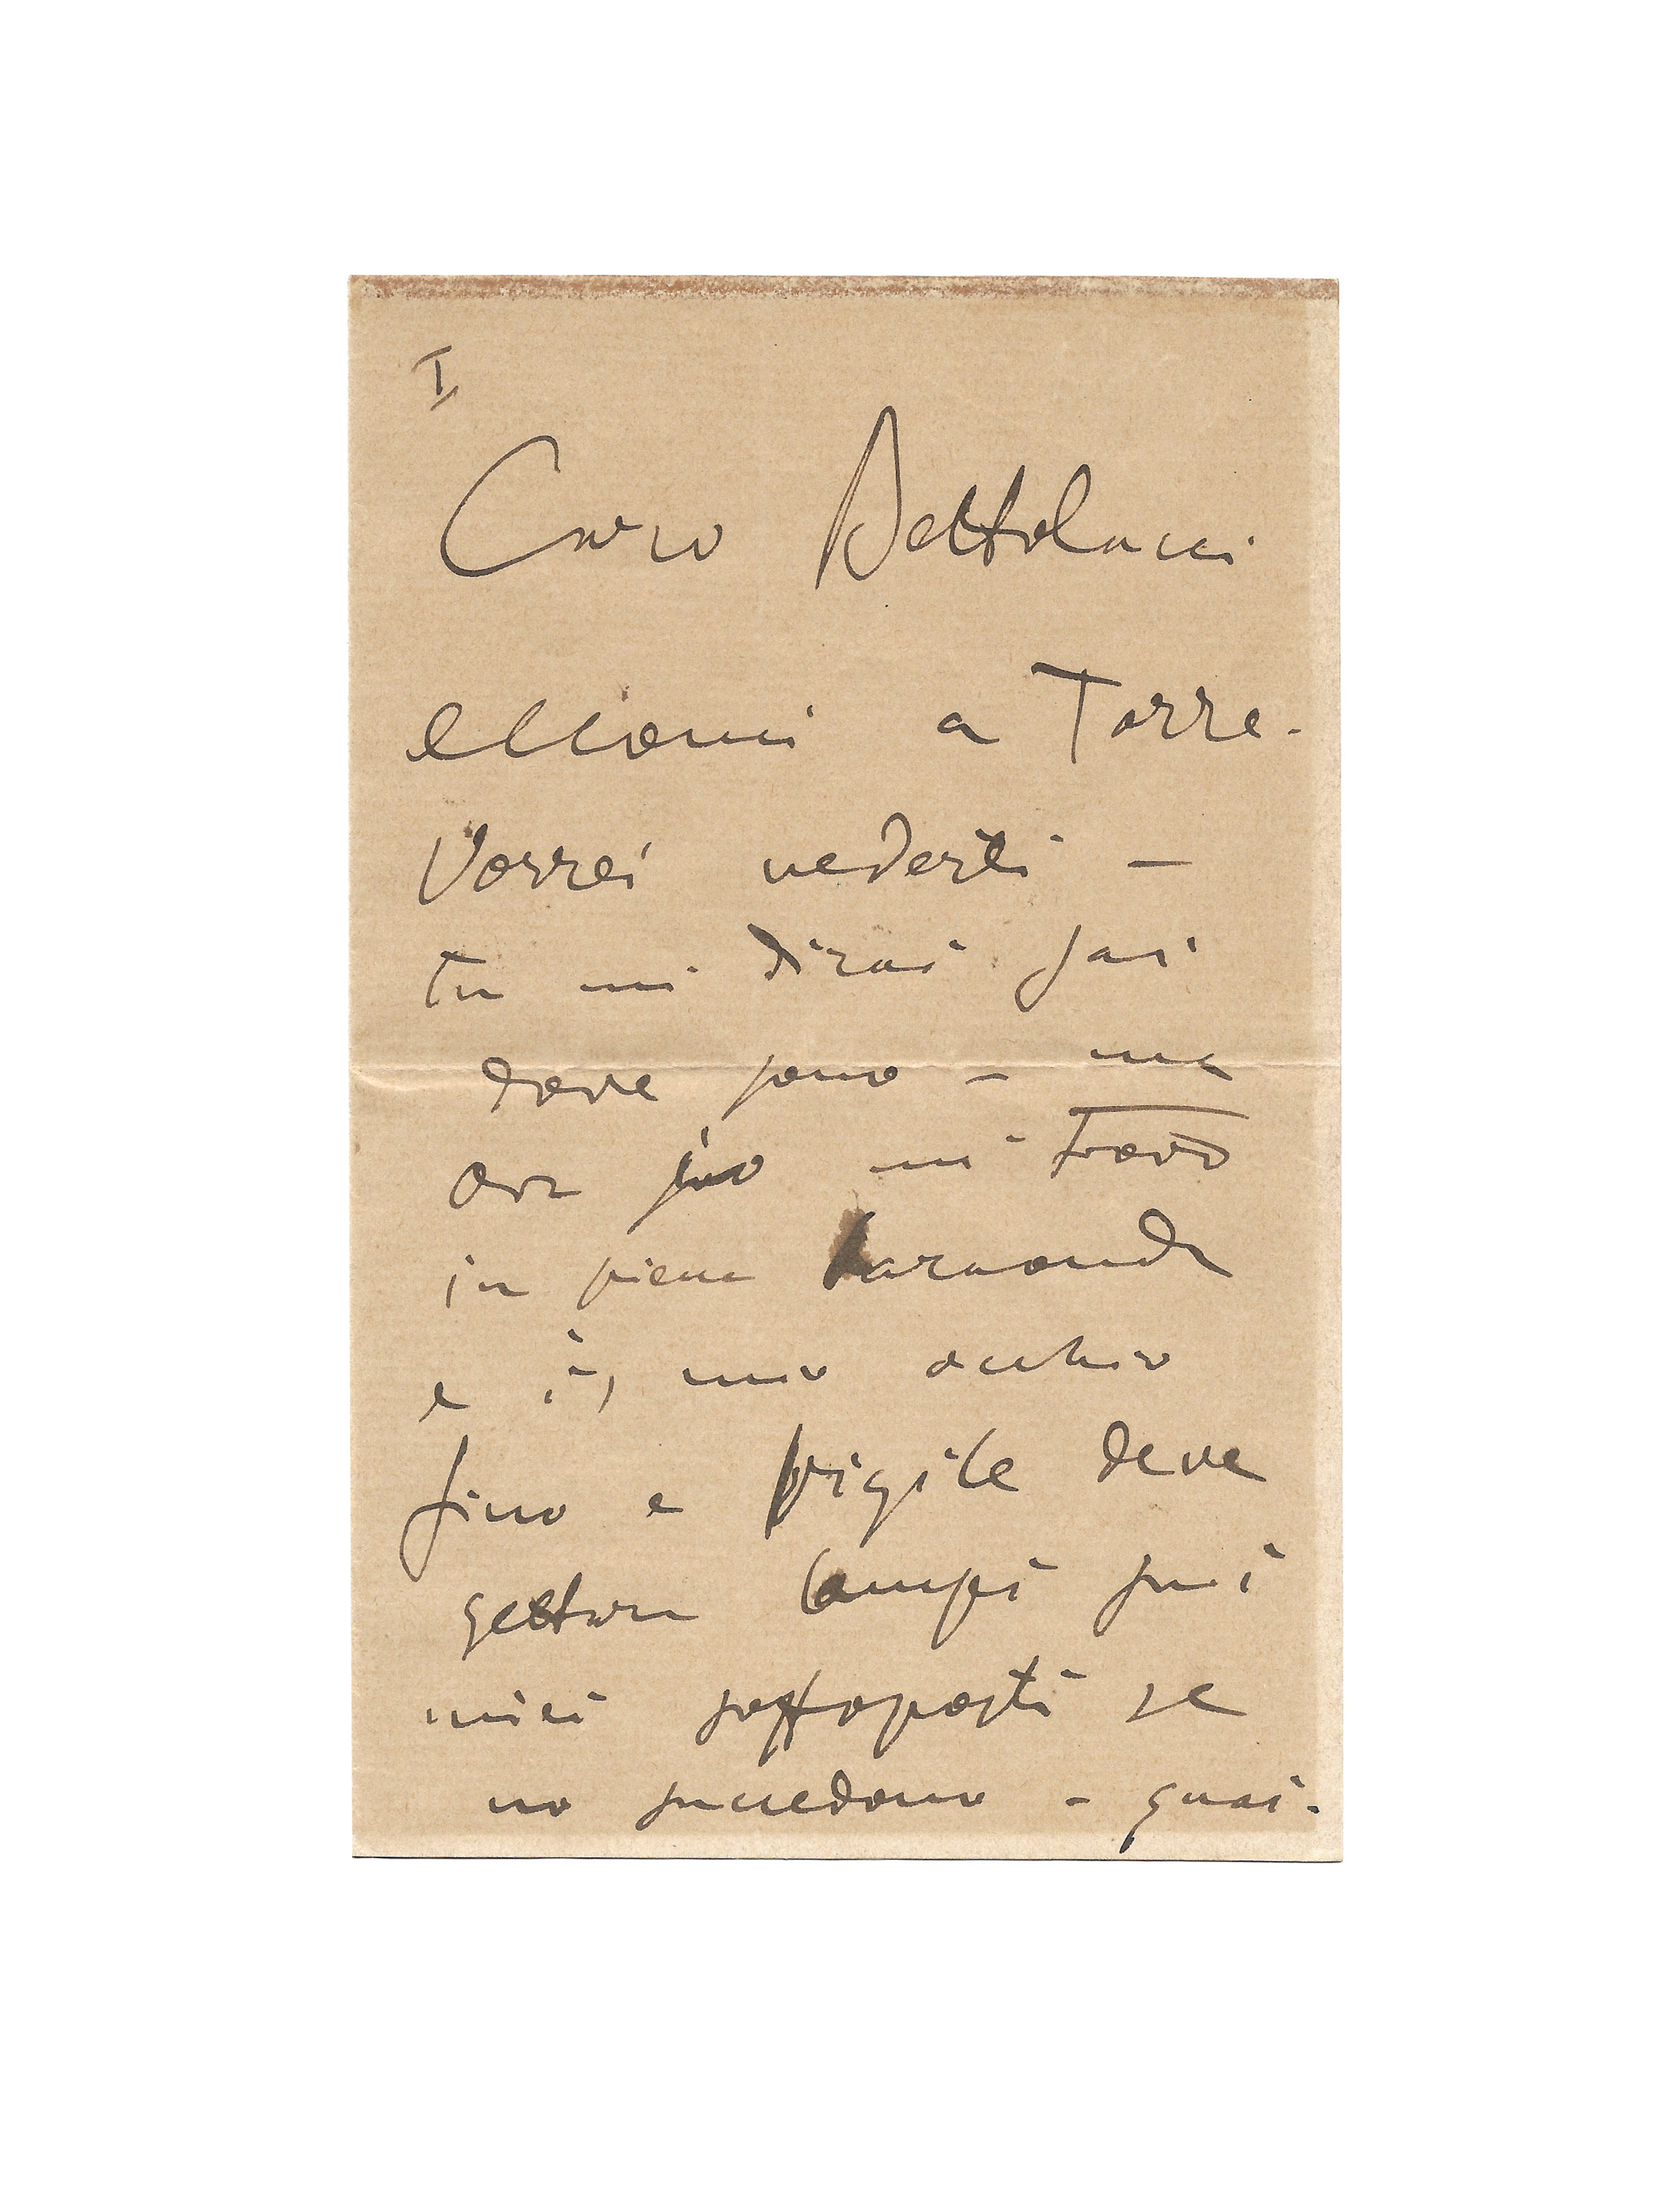 I
Caro Bettolacci
eccomi a Torre.
Vorrei vederti –
tu mi dirai sai
dove sono – ma
ora io mi trovo
in piena baraonda
e il mio occhio
fino e vigile deve
gettare lampi sui
miei sottoposti se
no succedono – guai.